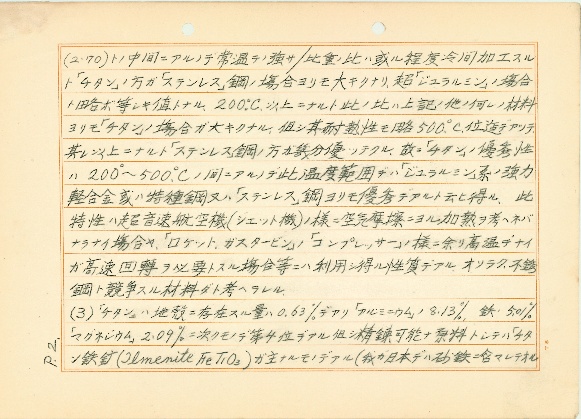 (2.70)トノ中間ニアルノデ常温デノ強サ/比重ノ比ハ或ル程度冷間加工スル
ト「チタン」ノ方ガ「ステンレス」鋼ノ場合ヨリモ大キクナリ、超「ジュラルミン」ノ場合
ト略ボ等シキ値トナル、200°C以上ニナルト此ノ比ハ上記ノ他ノ何レノ材料
ヨリモ「チタン」ノ場合ガ大キクナル、但シ其耐熱性モ略500°C位迄デアッテ、
其レ以上ニナルト「ステンレス」鋼ノ方ガ幾分優ッテクル、故ニ「チタン」ノ優秀性
ハ200°~500°Cノ間ニアルノデ此温度範囲デハ「ジュラルミン」系ノ強力
軽合金或ハ特種鋼又ハ「ステンレス」鋼ヨリモ優秀デアルト云ヒ得ル、此
特性ハ超音速航空機(ジェット機)ノ様ニ空気摩擦ニヨル加熱ヲ考ヘネバ
ナラナイ場合ヤ、「ロケット、ガスタービン」ノ「コンプレッサー」ノ様ニ余リ高温デナイ
ガ高速回轉ヲ必要トスル場合等ニハ利用シ得ル性質デアル、オソラク不銹
鋼ト競争スル材料ダト考ヘラレル、
(3)「チタン」ハ地殻ニ存在スル量ハ0.63%デアリ「アルミニウム」8.13%、鉄5.01%
「マグネシウム」2.09%ニ次グモノデ第4位デアル但シ精錬可能ナ原料トシテハ「チタ
ン鉄鉱(Ilmenite FeTiO₃)ガ主ナルモノデアル(我ガ日本デハ砂鉄ニ含マレテオル
P.2.